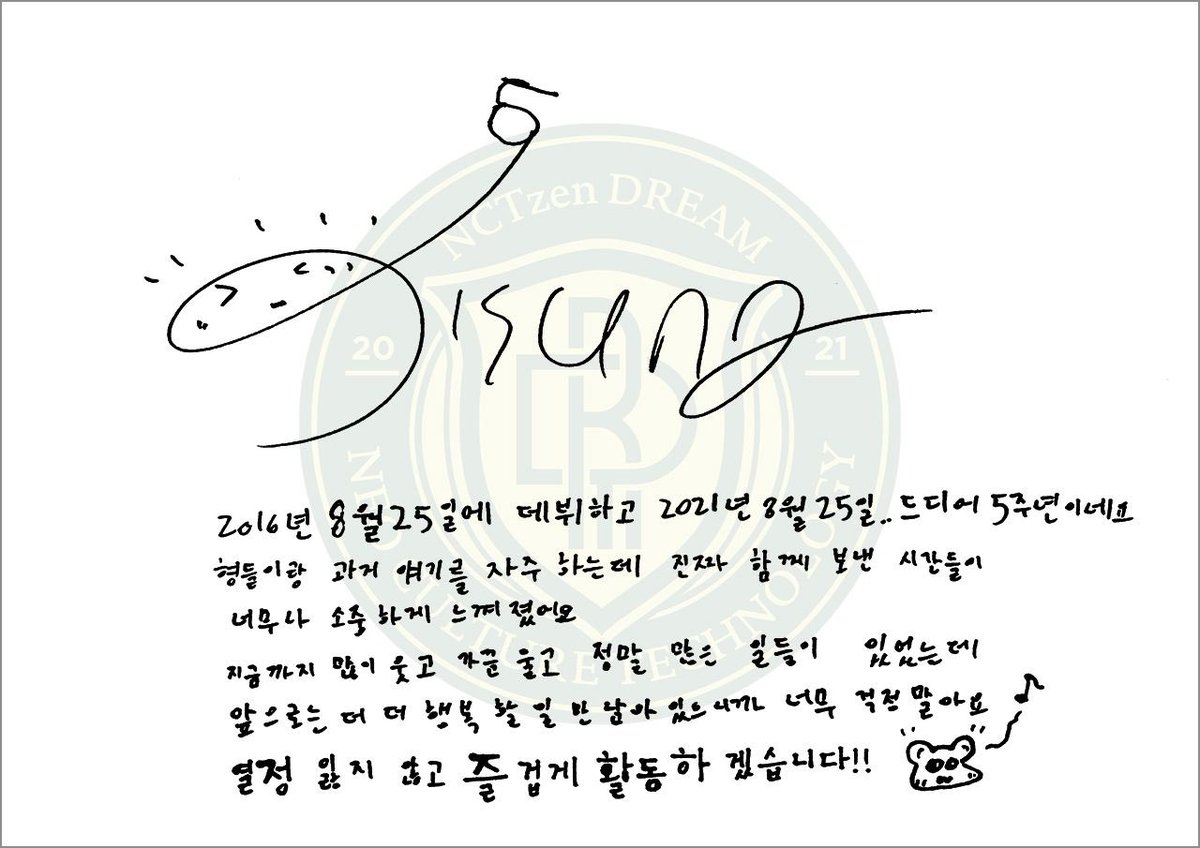 5
Jisung
NCTzen DREAM
20 21
NEO CULTURE TECHNOLOGY
2016년 8월 25일에 데뷔하고 2021년 8월 25일.. 드디어 5주년이네요
형들이랑 과거 얘기를 자주 하는데 진짜 함께 보낸 시간들이
너무나 소중하게 느껴졌어요
지금까지 많이 웃고 가끔 울고 정말 많은 일들이 있었는데
앞으로는 더 더 행복할 일만 남아있으니까 너무 걱정말아요
열정 잃지 않고 즐겁게 활동하겠습니다!!